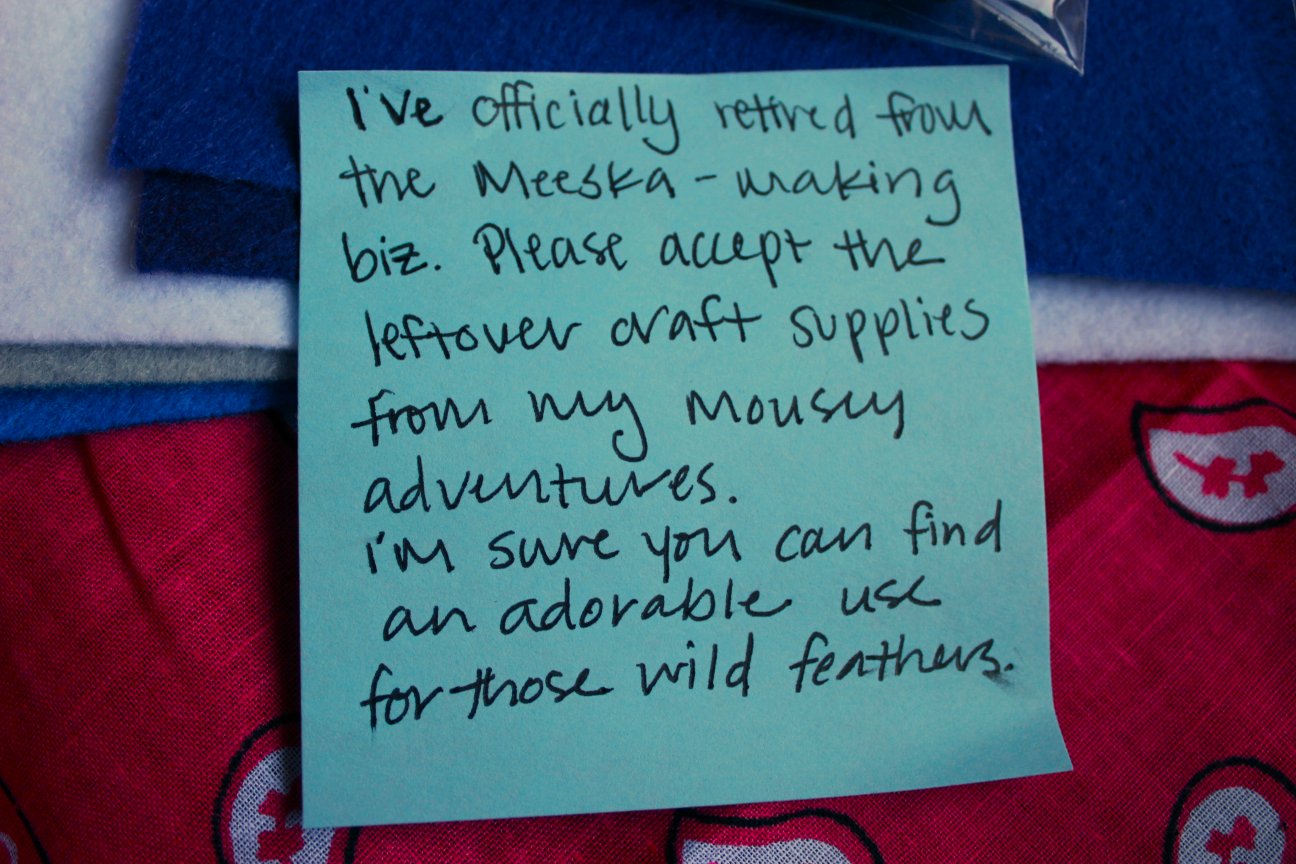 I've officially retired from
the Meeska-making
biz. Please accept the
leftover craft supplies
from my mousey
adventures.
i'm sure you can find
an adorable use
for those wild feathers.